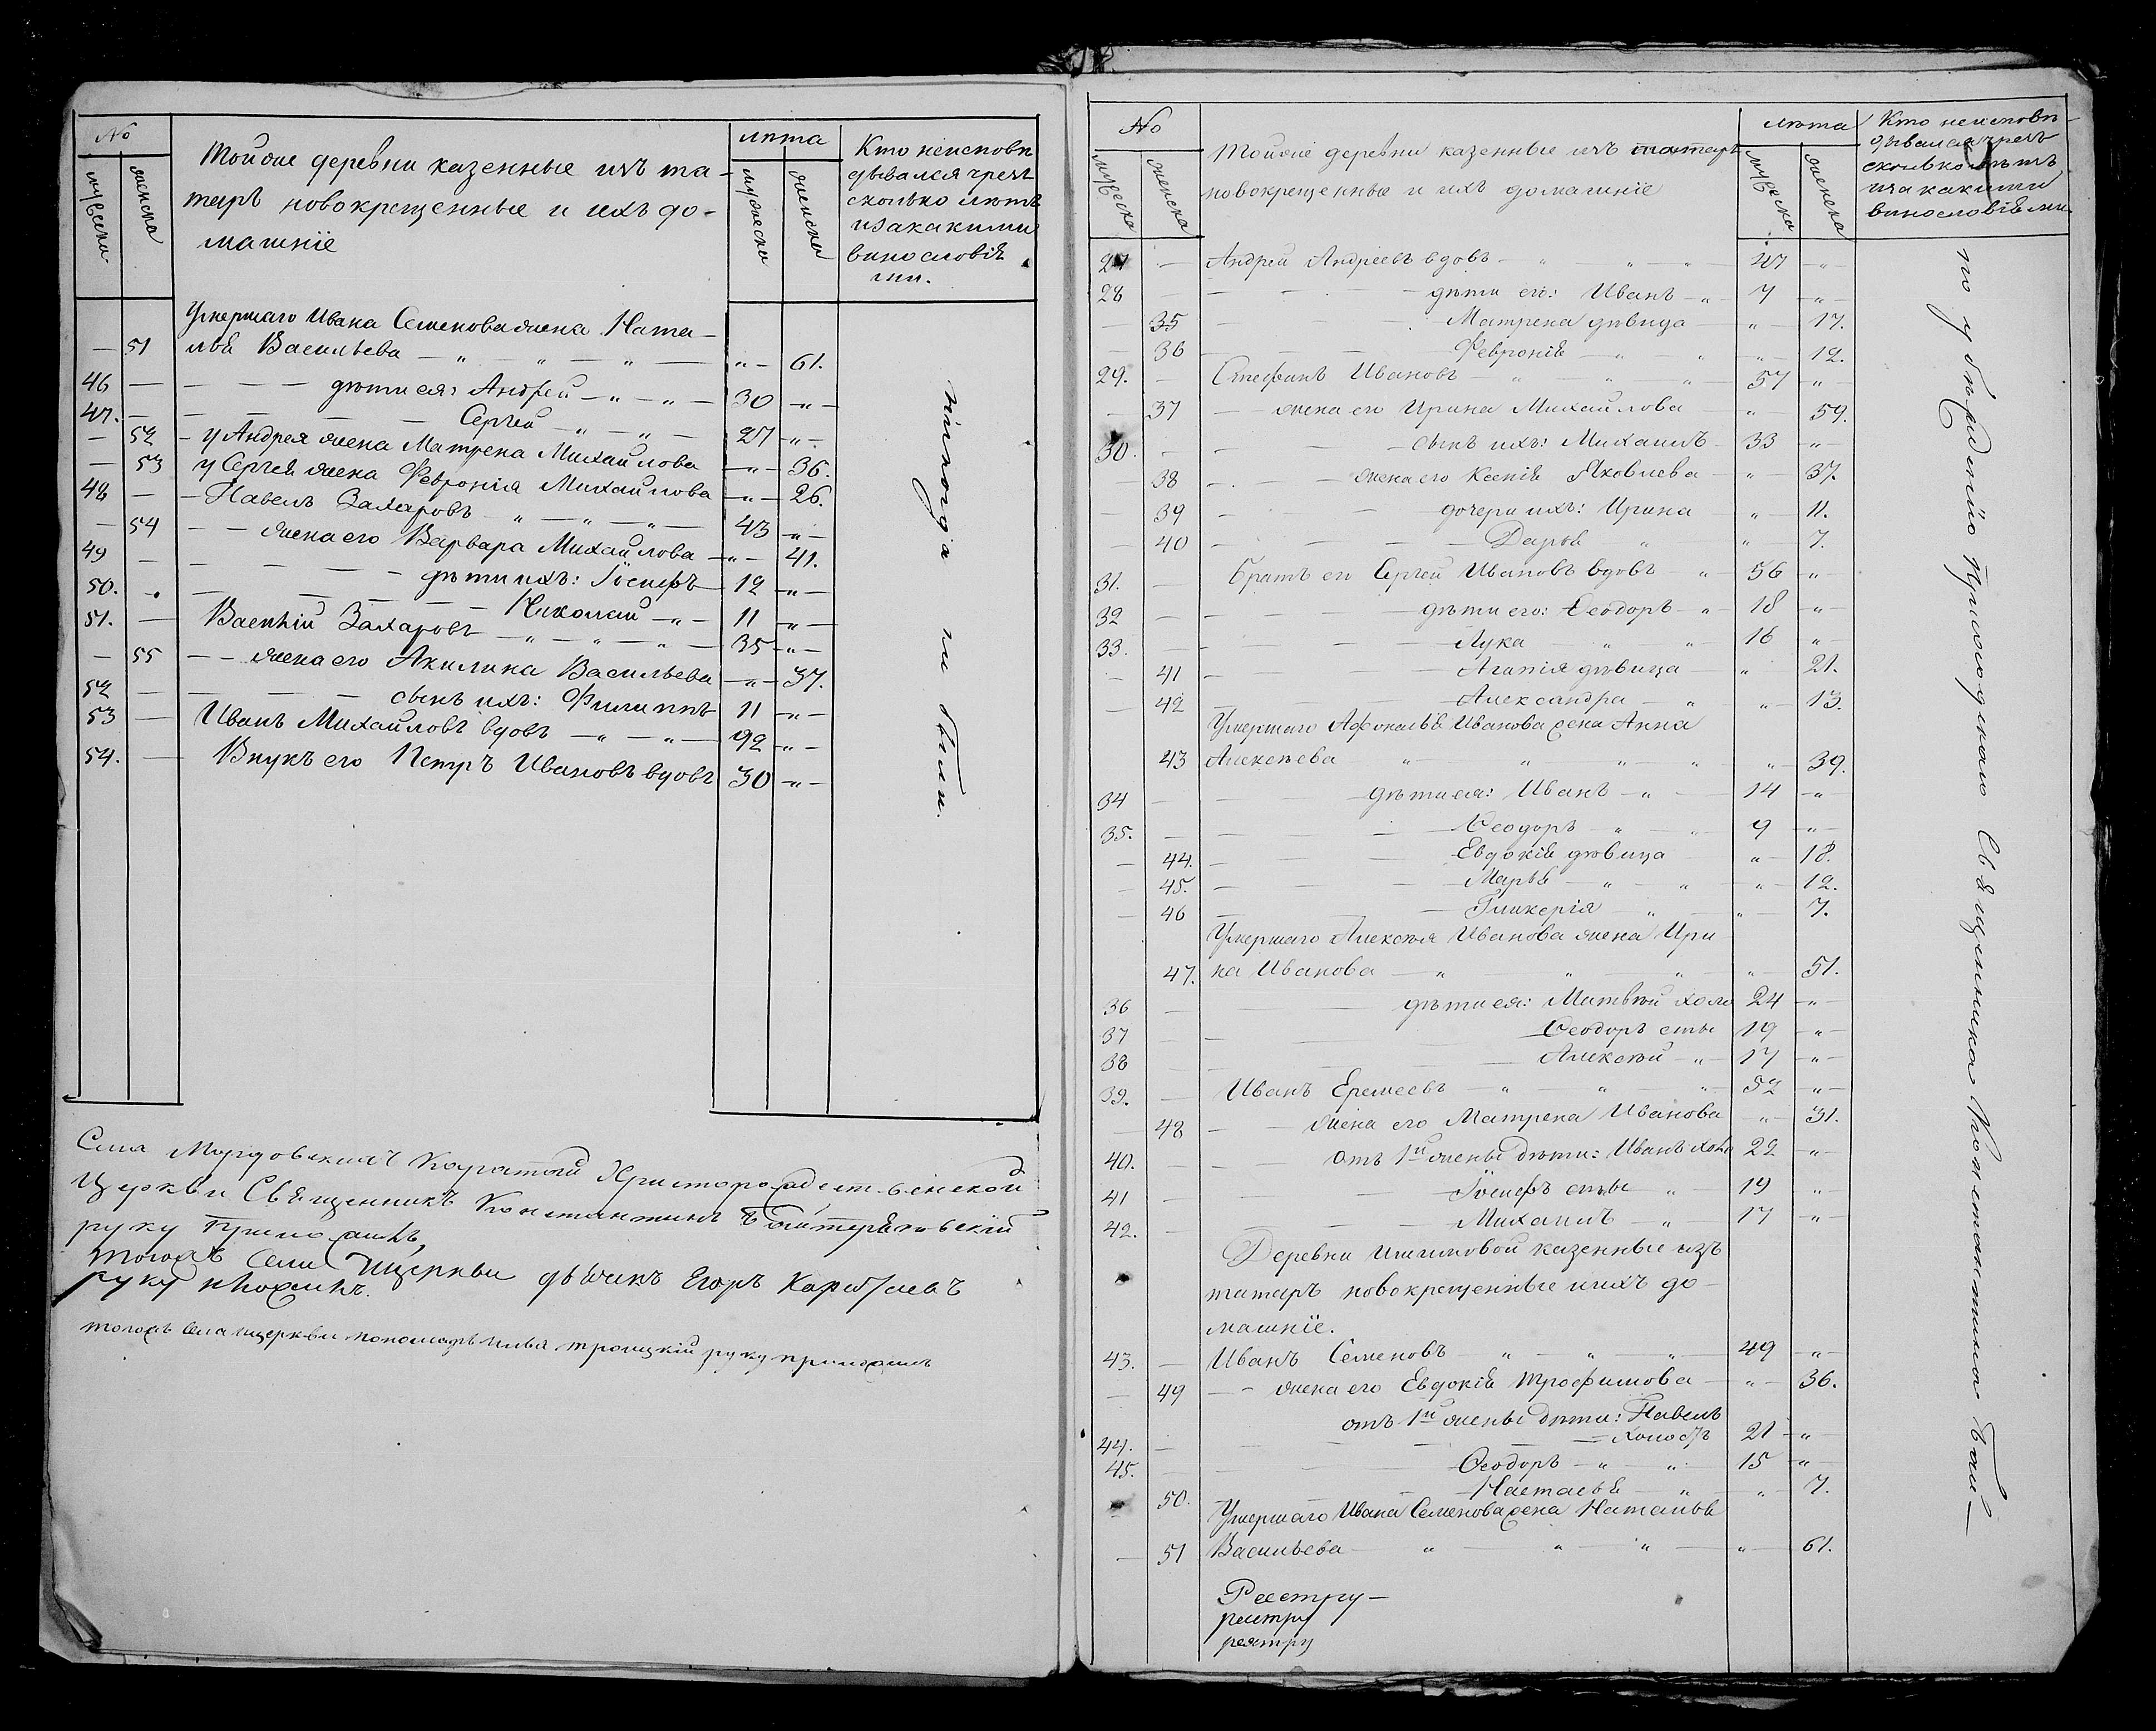 №
мужеска
женска
Тойже деревни казенные изъ та-
таръ новокрещенные и ихъ до-
машніе
лѣта
мужеска
женска
Кто неисповѣ
дывался чрезъ
сколько лѣтъ
иза какими
винословія
ми.
Умершаго Ивана Семенова жена Ната-
— 51 лья Васильева — „ — „ — „ — „ — 61.
46 — — — — дѣти ея: Андрей — „ — „ — 30 — „ —
47. — — — — Сергѣй — „ — „ — 27 — „ —
— 52 — у Андрея жена Матрена Михайлова — „ — 36.
— 53 у Сергѣя жена Февронія Михайлова — „ — 26.
48 — — Павелъ Захаровъ — „ — „ — „ — 43 — „ —
— 54 — — жена его Варвара Михайлова — „ — 41.
49 — — — — дѣти ихъ: Іосифъ — 12 — „ —
50. — — — — Николай — „ — 11 — „ —
51. — Василій Захаровъ — „ — „ — „ — 35 — „ —
— 55 — — жена его Акилина Васильева — „ — 37.
52 — — — — сынъ ихъ: Филиппъ 11 — „ —
53 — Иванъ Михайловъ вдовъ — „ — „ — 92 — „ —
54. — Внукъ его Петръ Ивановъ вдовъ 30 — „ —
никогда не были.
Села Мордовскихъ Каратай Христорождественской
Церкви Священникъ Константинъ
руку приложилъ,
тогожъ села и церкви дьячекъ Егоръ
руку приложилъ.
тогожъ села и церкви пономарь Илья троицкій руку приложилъ
№
мужеска
женска
Тойже деревни казенные изъ татаръ
новокрещенные и ихъ домашніе
лѣта
мужеска
женска
Кто неисповѣ-
дывался чрезъ
сколько лѣтъ
иза какими
винословіями.
27 — Андрей Андреевъ вдовъ — „ „ „ 47 — „ —
28 — — — — дѣти его: Иванъ — „ 7 — „ —
— 35 — Матрена дѣвица — „ — 17.
— 36 — Февронія — „ — „ „ — 12.
29. — Стефанъ Ивановъ — „ — „ — „ 57 — „ —
— 37 — — жена его Ирина Михайлова „ 59.
30. — — — — сынъ ихъ: Михаилъ 33 — „ —
38 — — — жена его Ксенія Яковлева — „ — 37.
— 39 — — — дочери ихъ: Ирина — „ — 11.
— 40 — — — Дарья „ „ — 7.
31. — братъ его Сергѣй Ивановъ вдовъ — „ 56 „ —
32 — — — — дѣти его: Ѳеодоръ — „ 18 — „ —
33. — — — — Лука „ „ 16 „ —
— 41 — — — Агапія дѣвица — „ 21.
— 42 — — — Александра — „ „ — 13.
Умершаго Афонасья Иванова жена Анна
43 Алексѣева „ „ „ „ „ — 39.
34 — — — — дѣти ея: Иванъ — „ — 14 — „
35. — — — — Ѳеодоръ — „ — „ 9 — „ —
— 44. — — — Евдокія дѣвица „ — 18.
— 45. — — — Марья — „ — „ — „ — 12.
— 46 — — — Гликерія — „ „ — 7.
Умершаго Алексѣя Иванова жена Ири
47. на Иванова — „ „ „ „ — 51.
36 — — дѣти ея: Матвѣй холо 24 — „ —
37 — — — Ѳеодоръ сты 19 — „ —
38 — — — Алексѣй — „ — 17 — „ —
39. — Иванъ Еремеевъ — „ — „ — „ 52 — „ —
— 48 — — жена его Матрена Иванова „ — 31.
40. — — отъ 1й жены дѣти: Иванъ холо 22 — „ —
41 — — — Іосифъ сты „ 19 „ —
42. — — — Михаилъ — „ 17 — „ —
Деревни Ишимовой казенные изъ
татаръ новокрещенные и ихъ до-
машніе.
43. — Иванъ Семеновъ — „ — „ — „ 49 — „ —
— 49 — — жена его Евдокія Трофимова — „ — 36.
отъ 1й жены дѣти: Павелъ
44. — — — — холостъ 21 — „
45. — — — Ѳеодоръ — „ — „ 15 — „ —
50. — — — Настасья „ „ — 7.
Умершаго Ивана Семенова жена Наталья
— 51 Васильева — „ — „ — „ — „ — 61.
Реестру —
реестру
реэтру
по убѣжденію приходскаго Священника Константина